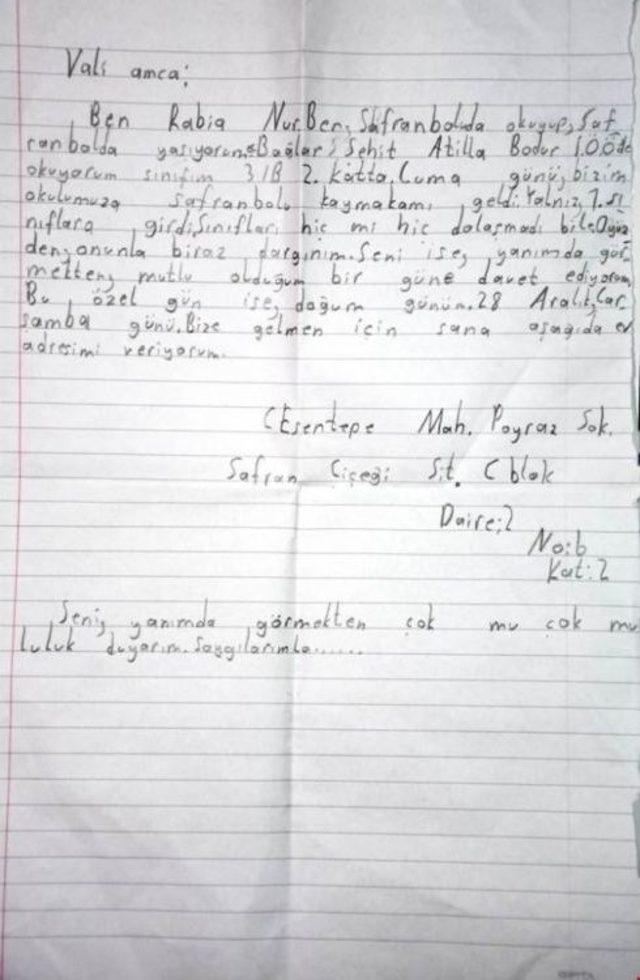 Vali amca;
Ben Rabia Nur.Ben, Safranboluda okuyup, Saf
ranbolda yaşıyorum.Bağlar Şehit Atilla Bodur İ.O.Ode
okuyorum sınıfım 3/B 2. katta.Cuma günü, bizim
okulumuza Safranbolu kaymakamı geldi.Yalnız, 1. sı
nıflara girdi.Sınıfları hiç mi hiç dolaşmadı bile.O yüz
den, onunla biraz dargınım.Seni ise, yanımda gör
mekten, mutlu olduğum bir güne davet ediyorum
Bu özel gün ise, doğum günüm.28 Aralık, Çar
şamba günü.Bize gelmen için sana aşağıda ev
adresimi veriyorum.
(Esentepe Mah. Poyraz Sok.
Safran Çiçeği Sit. C blok
Daire;2
No:6
Kat:2
Seni, yanımda görmekten çok mu çok mu
luluk duyarım.Saygılarımla......